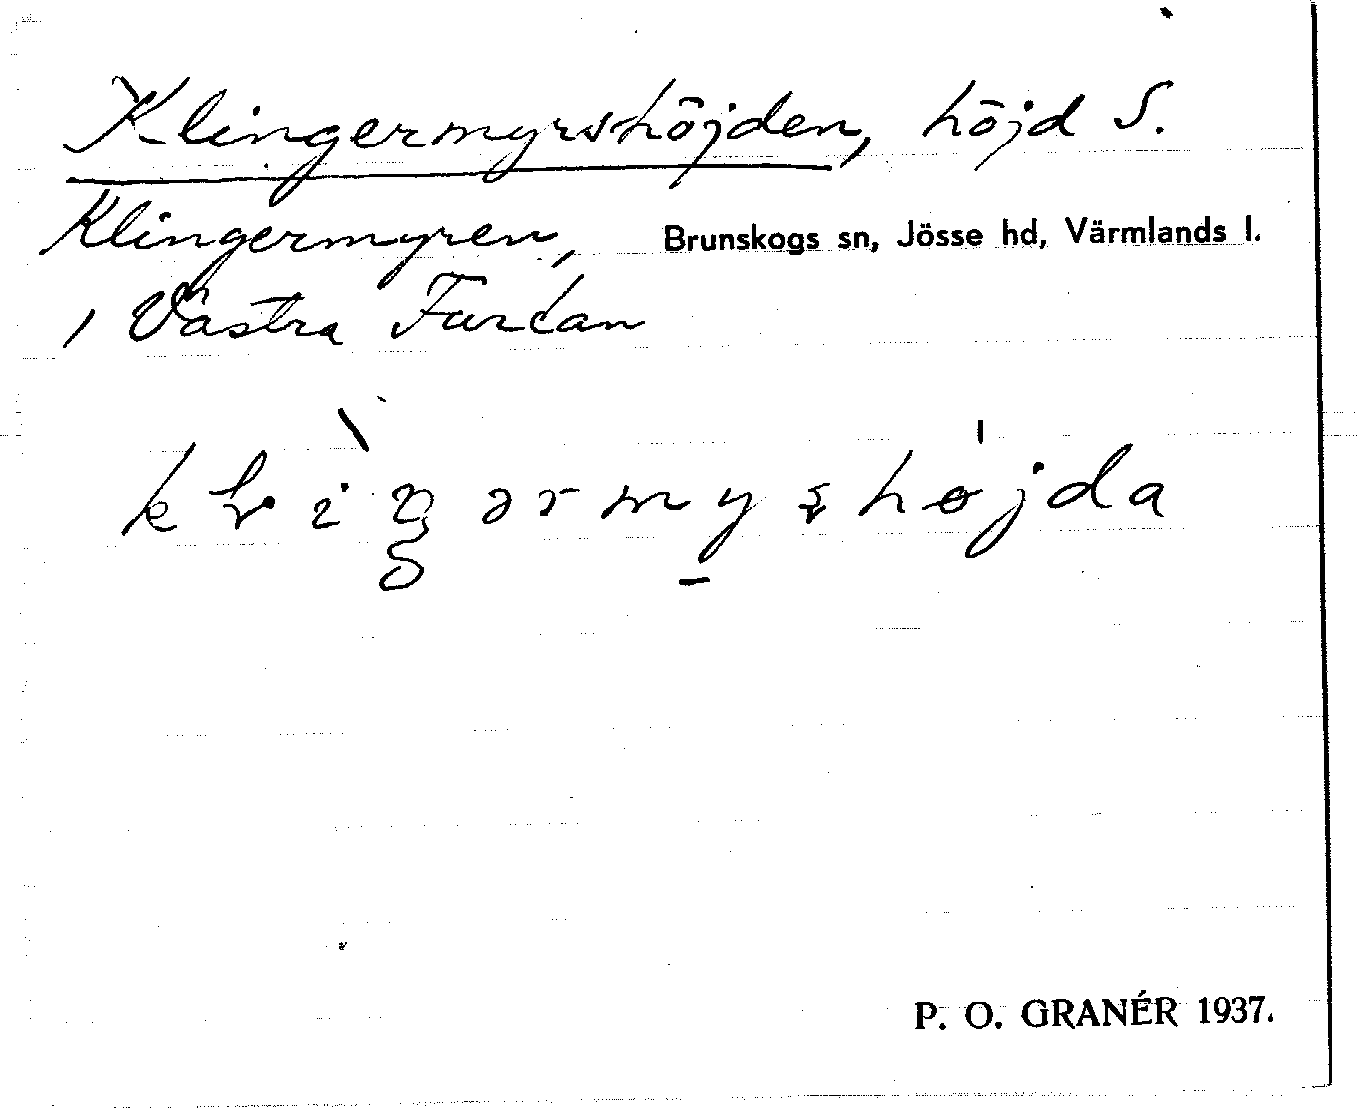 Klingermyrshöjden, höjd S.
Klingermyren, Brunskogs sn, Jösse hd, Värmlands l.
i Västra Furtan
P. O. GRANÉR 1937.